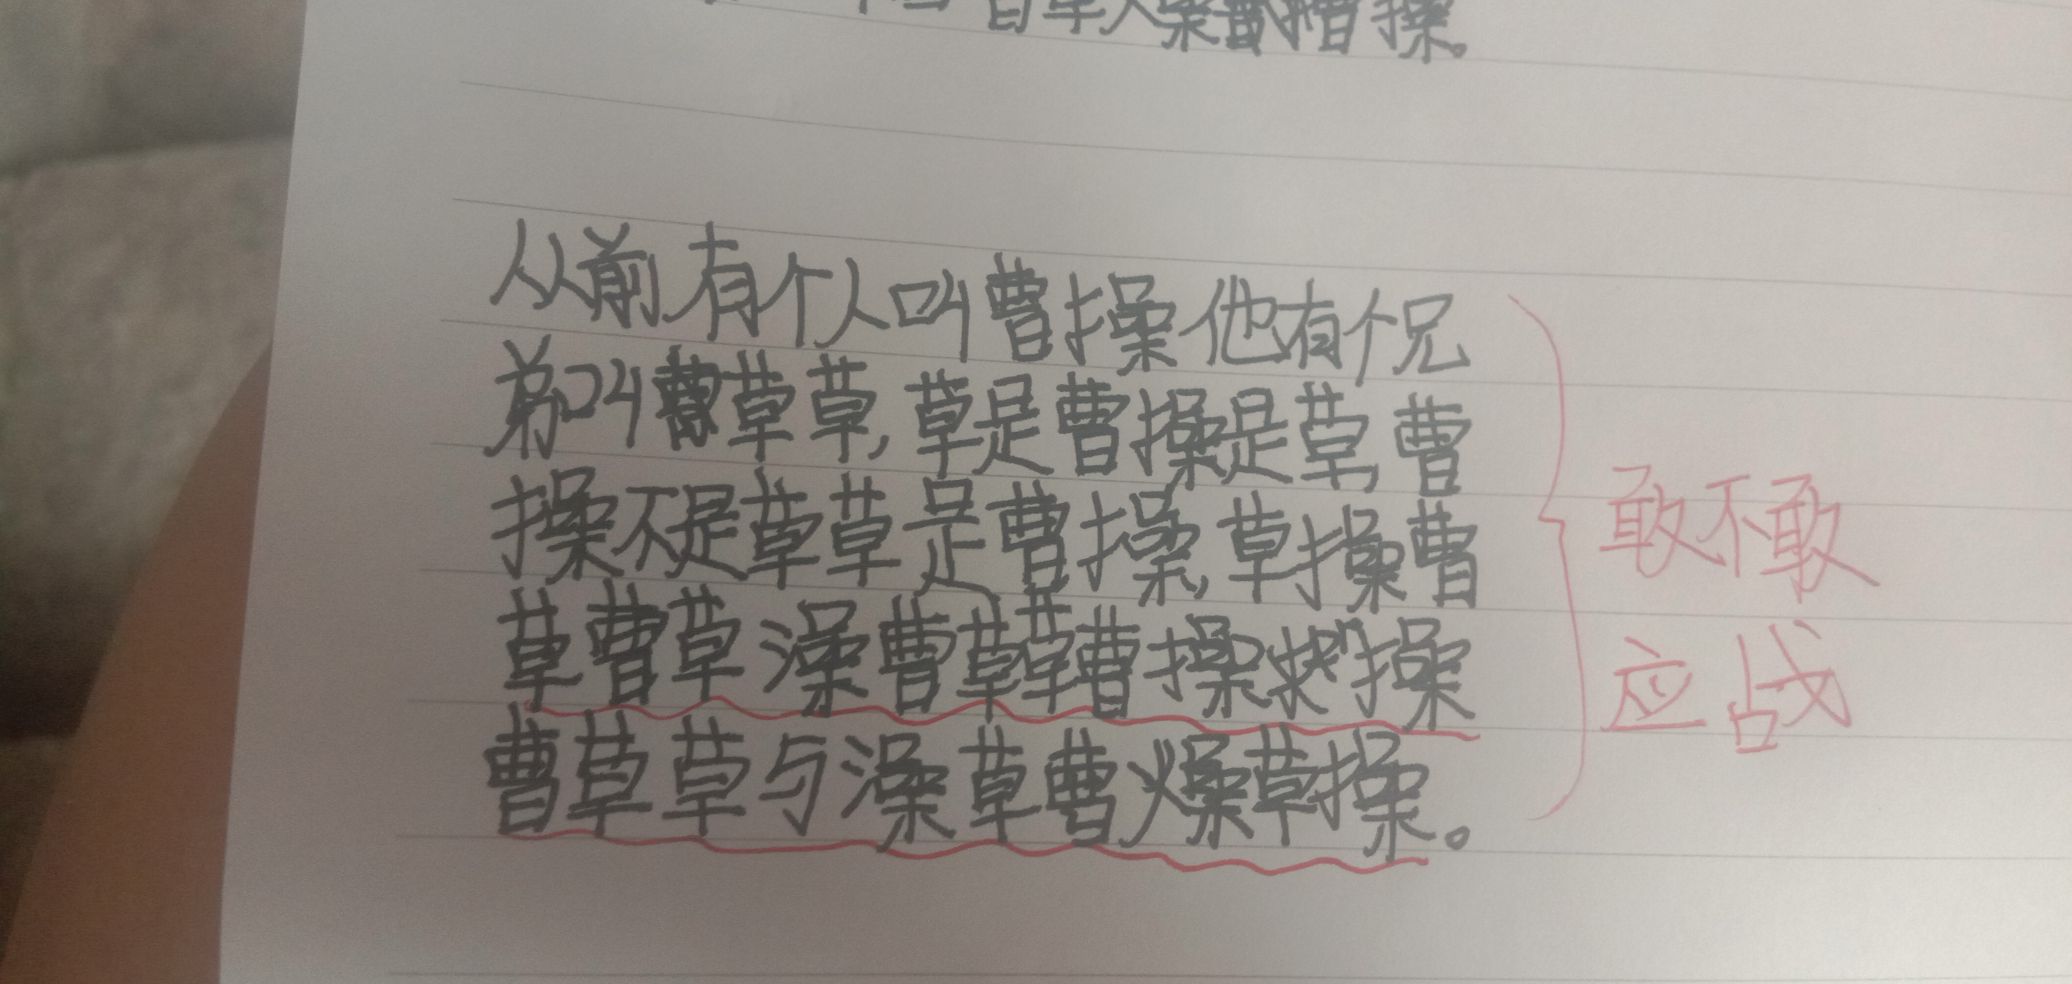 从前,有个人叫曹操他有个兄
弟叫曹草草,草是曹操是草,曹
操不是草草是曹操,草操曹
草曹草澡曹草草曹操操
曹草草与澡草曹燥草操。
敢不敢
应战